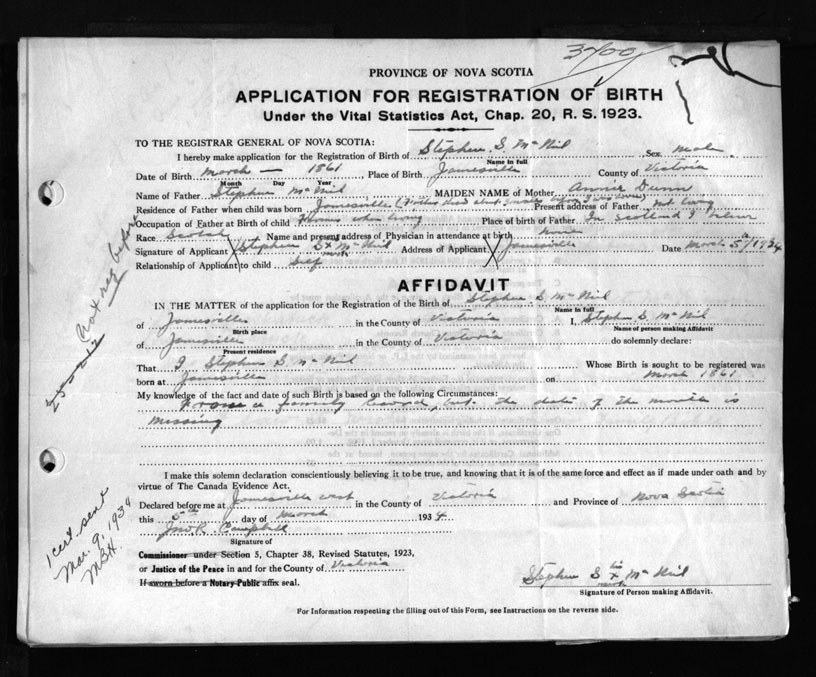 3/00
PROVINCE OF NOVA SCOTIA
APPLICATION FOR REGISTRATION OF BIRTH
Under the Vital Statistics Act, Chap. 20, R. S. 1923.
TO THE REGISTRAR GENERAL OF NOVA SCOTIA:
I hereby make application for the Registration of Birth of Stephen S McNeil Sex male
Name in full
Date of Birth March — 1861 Place of Birth Jamesville County of Victoria
Month Day Year
Name of Father Stephen McNeil MAIDEN NAME of Mother Annie Dunn
Residence of Father when child was born Jamesville (Father died before I was born) Present address of Father not living
Occupation of Father at Birth of child when living Place of birth of Father In Scotland I
Race Scotch Name and present address of Physician in attendance at birth none
Signature of Applicant Stephen S his x mark McNeil Address of Applicant Jamesville Date March 5/1934
Relationship of Applicant to child Self
AFFIDAVIT
IN THE MATTER of the application for the Registration of the Birth of Stephen S McNeil
Name in full
of Jamesville in the County of Victoria I, Stephen S McNeil
Birth place Name of person making Affidavit
of Jamesville in the County of Victoria do solemnly declare:
Present residence
That I Stephen S McNeil Whose Birth is sought to be registered was
born at Jamesville on March 1861
My knowledge of the fact and date of such Birth is based on the following Circumstances:
From a family Record, but the date of the month is
missing
I make this solemn declaration conscientiously believing it to be true, and knowing that it is of the same force and effect as if made under oath and by
virtue of The Canada Evidence Act.
Declared before me at Jamesville west in the County of Victoria and Province of Nova Scotia
this 5th day of March 1934
Jno. R. Campbell
Signature of
Commissioner under Section 3, Chapter 38, Revised Statutes, 1923,
or Justice of the Peace in and for the County of Victoria
If sworn before a Notary Public affix seal.
Stephen S his x mark McNeil
Signature of Person making Affidavit.
For Information respecting the filling out of this Form, see Instructions on the reverse side.
Not reg before
1 cert sent
Mar. 9, 1934
M.B.H.